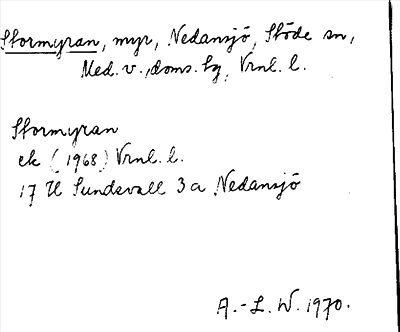 Stormyran, myr, Nedansjö, Stöde sn,
Med. v. doms. hg, Vrnl. l.
Stormyran
ek (1968) Vrnl. l.
17 H Sundsvall 3 a Nedansjö
A.-L. W. 1970.